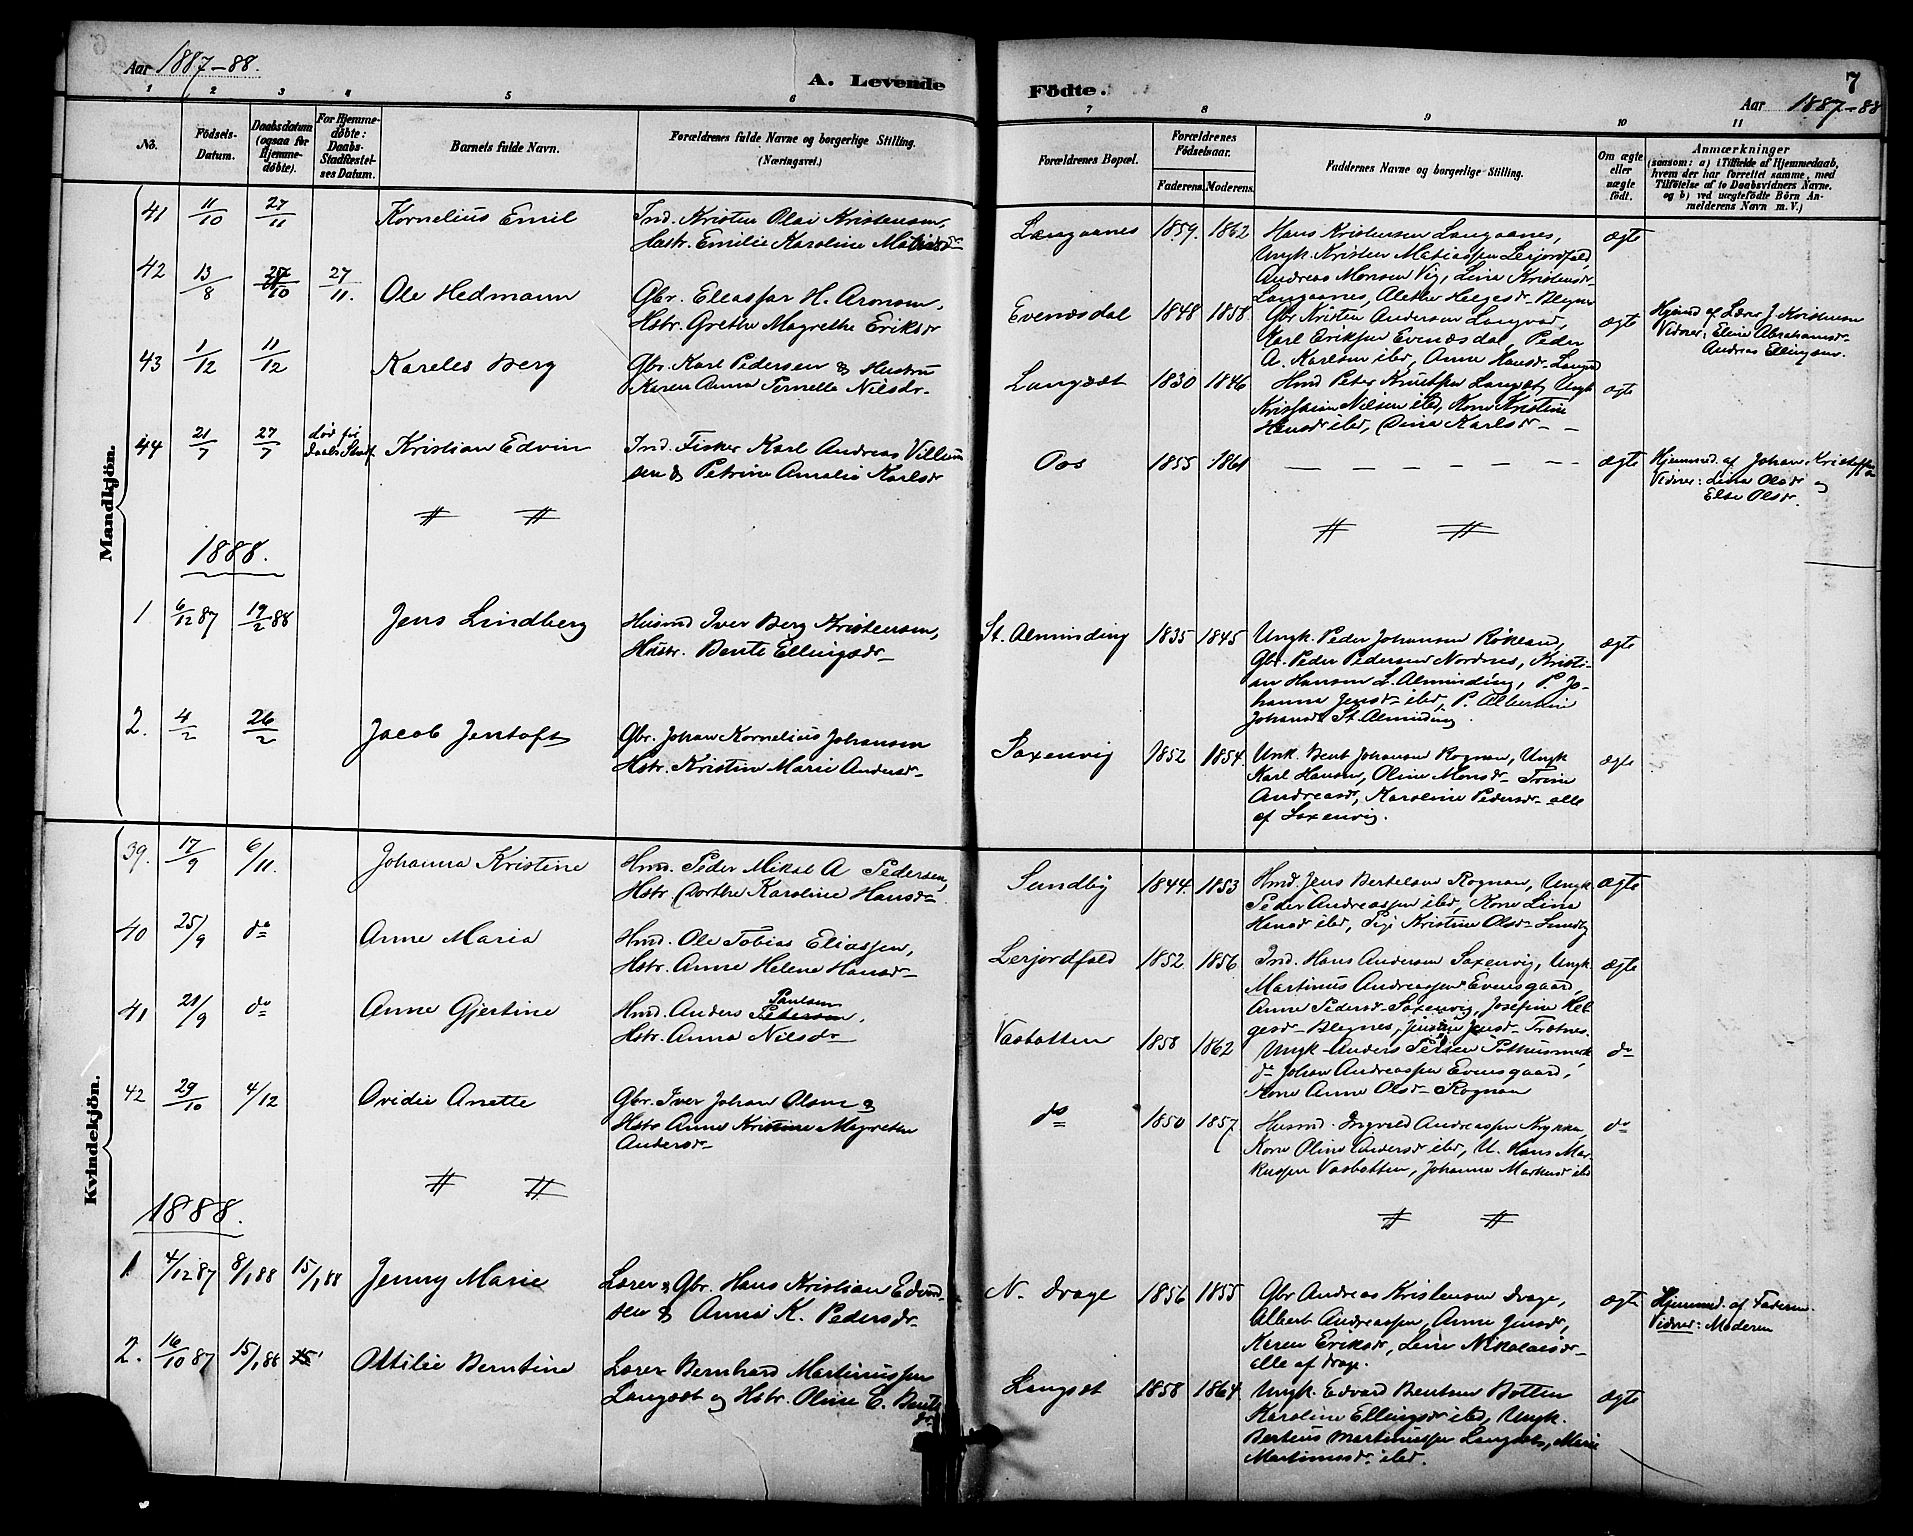 Aar 1887-88.
A. Levende
Födte.
7
Aar 1887-88
1 2 3 4 5 6 7 8 9 10 11
No.
Födsels-
Datum.
Daabsdatum
(ogsaa for
Hjemme-
döbte).
For Hjemme-
döbte:
Daabs-
Stadfæstel-
ses Datum.
Barnets fulde Navn.
Forældrenes fulde Navne og borgerlige Stilling.
(Næringsvei.)
Forældrenes Bopæl.
Forældrenes
Födselsaar.
Faderens. Moderens.
Faddernes Navne og borgerlige Stilling.
Om ægte
eller
uægte
födt.
Anmærkninger
(saasom: a) i Tilfælde af Hjemmedaab,
hvem der har forrettet samme, med
Tilföielse af to Daabsvidners Navne.
og b) ved uægtefödte Börn An-
melderens Navn m. V.)
Mandkjön.
41 11/10 27/11 Kornelius Emil
Ind. Kristen Olai Kristensen,
Hustr. Emilie Karoline Matiasdr
Langaanes 1859. 1862
Hans Kristensen Langaanes,
Ungk. Kristen Matiassen Leijordfald,
Andreas Monsen Vig, Lina Kristensdr
Langaanes, Alethe Helgesdr Blegnes
ægte
42 13/8 /10 27/11. Ole Hedmann
Gbr. Eliasser H. Aronsen,
Hstr. Grethe Magrethe Eriksdr
Evenæsdal 1848 1858
Gbr Kristen Andersen Langvad,
Karl Eriksen Evenæsdal, Peder
A. Karlsen ibd, Anne Hansdr
ægte
Hjemd af Lærer J. Kristensen
Vidner: Eline Abrahamsdr
Andreas Ellingsen.
43 1/12 11/12 Kareles Berg
Gbr. Karl Pedersen & Hustru
Karen Anna Pernella Nilsdr
Langsæt 1830 1846
Hmd Peter Knutsen Langsæt, Ungk
Kristian Nilsen ibd, Kone Kristine
Hansdr ibd, Dina Karlsdr
ægte
44 21/7 27/7 död før
Daabs Stadf.
Kristian Edvin
Ind. Fisker Karl Andreas Villum
sen & Petrine Amalie Karlsdr
Oos 1855 1861
— — — — — — —
ægte
Hjemmed. af Johan Kristoffersen
Vidner: Lina Olsdr og
Else Olsdr.
1888.
1 6/12 87 19/2 88 Jens Lindberg
Husmd Iver Berg Kristensen,
Hustr. Bente Ellingsdr
St. Alminding 1835 1845
Ungk. Peder Johansen Røkland,
Gbr. Peder Pedersen Nordnes, Kristi-
an Hansen St. Alminding, P. Jo-
hanna Jensdr ibd, P. Albertine
Johansdr St. Alminding.
ægte
2. 4/2 26/2 Jacob Jentoft
Gbr. Johan Kornelius Johansen
Hstr. Kristine Marie Andersdr
Saxenvig 1852 1854.
Unk. Bent Johansen Rognan, Ungk
Karl Hansen, Oline Monsdr Trine
Andreasdr, Karoline Pedersdr alle
af Saxenvig.
ægte
Kvindekjön.
39. 17/9 6/11. Johanna Kristine
Hmd. Peder Mikal A Pedersen,
Hstr. Dorthe Karoline Hansdr
Sundby 1844. 1853
Hmd. Jens Bertelsen Rognan, Ungk
Peder Andreassen ibd, Kone Lina
Hansdr ibd, Pige Kristine Olsdr Sundby
ægte
40 25/9 do Anne Maria
Hmd. Ole Tobias Eliassen,
Hstr. Anne Helene Hansdr
Lerjordfald 1852 1856
Ind. Hans Andersen Saxenvig, Ungk
Martinus Andreassen Evensgaard,
Anne Pedersdr Saxenvig, Josefine Hel-
gesdr Blegnes, Jensine Jensdr Trætnes.
ægte
41 21/9 do Anne Gjertine
Hmd. Anders Paulsen
Pedersen,
Hstr. Anna Nilsdr
Vasbotten 1858 1862
Ungk Anders Persen Pothusmark
do Johan Andreassen Evensgaard,
Kone Anne Olsdr Rognan
do
42 29/10 4/12 Ovidie Anette
Gbr. Iver Johan Olsen &
Hstr Anne Kristine Magrethe
Andersdr
do 1850 1857
Husmd. Ingvald Andreassen Trykka,
Kone Oline Andersdr ibd, U. Hans Mar-
kussen Vasbotten, Johanna Markusdr ibd
do
1888.
1 4/12 87 8/1 88 15/1 88 Jenny Marie
Lærer & Gbr. Hans Kristian Edvard
sen & Anna K. Pedersdr
N. Drage 1856 1855
Gbr Andreas Kristensen Drage,
Albert Andreassen, Anne Jensdr,
Karen Eriksdr, Lina Nikolaisdr
alle af Drage.
ægte
Hjemmed. af Faderen
Vidner: Moderen
2. 16/10 87 15/1 88 15 Ottilie Berntine
Lærer Bernhard Martinussen
Langsæt og Hstr. Oline E. Bents
dr
Langsæt 1858 1864.
Ungk. Edvard Bentsen Botten
Karoline Ellingsdr ibd, Ungk.
Berteus Martinussen Langsæt, Marie
Martinusdr ibd.
ægte